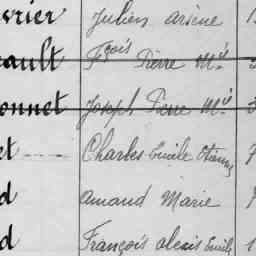 vrier Julien arsène
ault Fçois Pierre Mie
onnet Joseph Pierre Mie
et Charles Emile
d amand Marie
d François alexis Emile